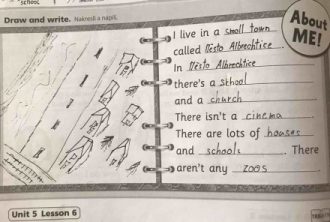 school
Draw and write. Nakresli a napiš.
About
ME!
I live in a small town
called Město Albrechtice.
In Město Albrechtice
there's a school
and a church
There isn't a cinema
There are lot of houses
and schools. There
aren't any zoos.
Unit 5 Lesson 6